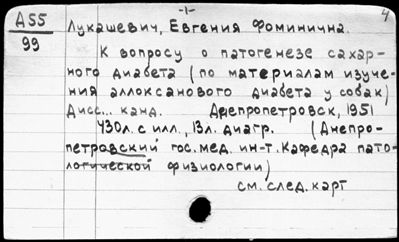 -1-
4
А55
99
Лукашевич, Евгения Фоминична.
К вопросу о патогенезе сахар-
ного диабета (по материалам изуче-
ния аллоксанового диабета у собак)
Дисс... канд. Днепропетровск, 1951
430л. с илл., 13л. диагр. (Днепро-
петровский гос. мед. ин-т. Кафедра пато-
логической физиологии)
см. след. карт